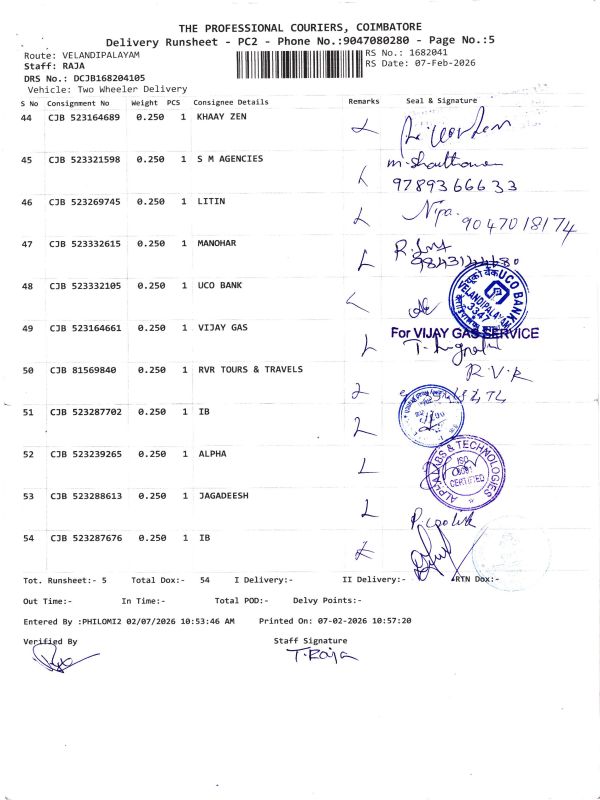 THE PROFESSIONAL COURIERS, COIMBATORE
Delivery Runsheet - PC2 - Phone No.:9047080280 - Page No.:5
Route: VELANDIPALAYAM RS No.: 1682041
Staff: RAJA RS Date: 07-Feb-2026
DRS No.: DCJB168204105
Vehicle: Two Wheeler Delivery
S No Consignment No Weight PCS Consignee Details Remarks Seal & Signature
44 CJB 523164689 0.250 1 KHAAY ZEN
45 CJB 523321598 0.250 1 S M AGENCIES
9789366633
46 CJB 523269745 0.250 1 LITIN
9047018174
47 CJB 523332615 0.250 1 MANOHAR
48 CJB 523332105 0.250 1 UCO BANK
UCO BANK VELANDIPALAYAM 3347
49 CJB 523164661 0.250 1 VIJAY GAS For VIJAY GAS SERVICE
50 CJB 81569840 0.250 1 RVR TOURS & TRAVELS R.V.R
51 CJB 523287702 0.250 1 IB
52 CJB 523239265 0.250 1 ALPHA
ALPHA LABS & TECHNOLOGIES ISO 9001 CERTIFIED
53 CJB 523288613 0.250 1 JAGADEESH
54 CJB 523287676 0.250 1 IB
Tot. Runsheet:- 5 Total Dox:- 54 I Delivery:- II Delivery:- RTN Dox:-
Out Time:- In Time:- Total POD:- Delvy Points:-
Entered By :PHILOMI2 02/07/2026 10:53:46 AM Printed On: 07-02-2026 10:57:20
Verified By Staff Signature
T. Raja